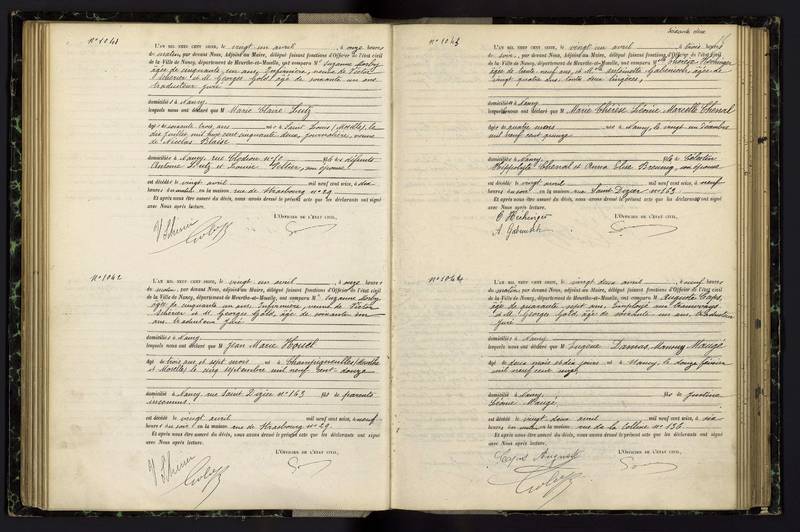 N° 1041
L'AN MIL NEUF CENT SEIZE, le vingt un avril, à onze heures
du matin, par devant Nous, Adjoint au Maire, délégué faisant fonctions d'Officier de l'état civil
de la Ville de Nancy, département de Meurthe-et-Moselle, ont comparu M Suzanne
âgée de cinquante un ans, Infirmière, veuve de Victor
Scherer et M Georges Gold, âgé de soixante un ans
traducteur juré
domiciliés à Nancy
lesquels nous ont déclaré que M Marie Claire Lutz
âgée de soixante trois ans née à Saint Louis (Moselle), le
dix juillet mil huit cent cinquante deux, journalière, veuve
de Nicolas Blaise
domiciliée à Nancy, rue Clodion n° 10 fille des défunts
Antoine Lutz et Louise Vettier, son épouse
est décédée le vingt avril mil neuf cent seize, à dix
heures du matin en la maison rue de Strasbourg n° 29.
Et après nous être assuré du décès, nous avons dressé le présent acte que les déclarants ont signé
avec Nous après lecture.
L'OFFICIER DE L'ÉTAT CIVIL,
N° 1042
L'AN MIL NEUF CENT SEIZE, le vingt un avril, à onze heures
du matin, par devant Nous, adjoint au Maire, délégué faisant fonctions d'Officier de l'état civil
de la Ville de Nancy, département de Meurthe-et-Moselle, ont comparu M Suzanne
âgée de cinquante un ans, Infirmière, veuve de Victor
Scherer et M Georges Gold, âgé de soixante un
ans, traducteur juré
domiciliés à Nancy
lesquels nous ont déclaré que M Jean Marie Houel
âgé de trois ans et sept mois né à Champigneulles (Meurthe
et Moselle) le cinq septembre mil neuf cent douze
domicilié à Nancy rue Saint Dizier n° 163 fils de parents
inconnus
est décédé le vingt avril mil neuf cent seize, à neuf
heures du soir en la maison rue de Strasbourg n° 29.
Et après nous être assuré du décès, nous avons dressé le présent acte que les déclarants ont signé
avec Nous après lecture.
L'OFFICIER DE L'ÉTAT CIVIL,
N° 1043
L'AN MIL NEUF CENT SEIZE, le vingt un avril, à trois heures
du soir, par devant Nous, Adjoint au Maire, délégué faisant fonctions d'Officier de l'état civil
de la Ville de Nancy, département de Meurthe-et-Moselle, ont comparu M Thérèse
âgée de trente neuf ans, et M Antoinette, âgée de
vingt quatre ans, toutes deux lingères,
domiciliées à Nancy
lesquelles nous ont déclaré que M Marie Thérèse Léonie Marcelle Chenal
âgée de quatre mois née à Nancy, le vingt un décembre
mil neuf cent quinze
domiciliée à Nancy fille de Célestin
Hippolyte Chenal et Anna Elise, son épouse
est décédée le vingt avril mil neuf cent seize, à neuf
heures du soir en la maison rue Saint Dizier n° 163
Et après nous être assuré du décès, nous avons dressé le présent acte que les déclarants ont signé
avec Nous après lecture.
L'OFFICIER DE L'ÉTAT CIVIL,
N° 1044
L'AN MIL NEUF CENT SEIZE, le vingt deux avril, à neuf heures
du matin, par devant Nous, adjoint au Maire, délégué faisant fonctions d'Officier de l'état civil
de la Ville de Nancy, département de Meurthe-et-Moselle, ont comparu M Auguste Caps,
âgé de quarante sept ans, Employé aux Tramways
et M George Gold, âgé de soixante un ans, traducteur
juré
domiciliés à Nancy
lesquels nous ont déclaré que M Eugène Damas Maugé
âgé de deux mois et dix jours né à Nancy, le douze février
mil neuf cent seize
domicilié à Nancy fils de Justine
Léonie Maugé
est décédé le vingt deux avril mil neuf cent seize, à six
heures du matin en la maison rue de la Colline n° 136
Et après nous être assuré du décès, nous avons dressé le présent acte que les déclarants ont signé
avec Nous après lecture.
Caps Auguste
L'OFFICIER DE L'ÉTAT CIVIL,